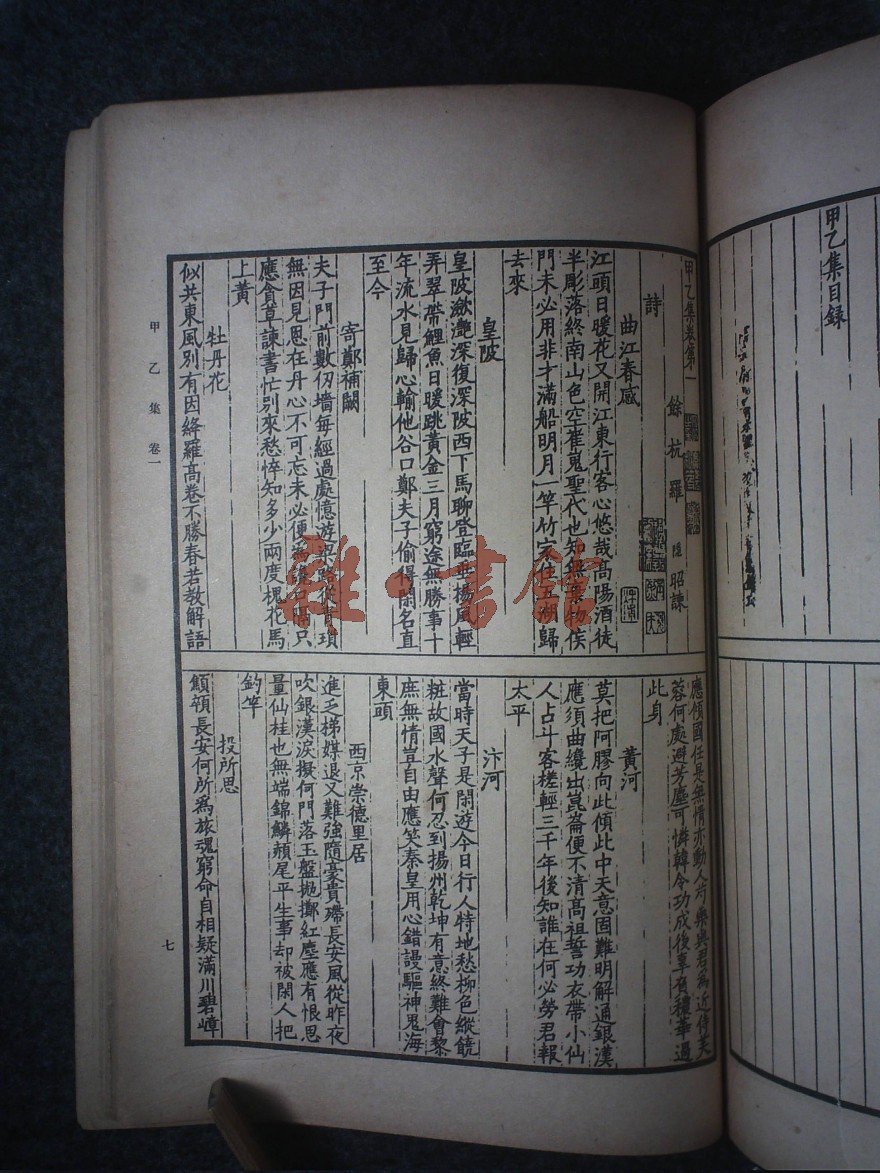 甲乙集目録
甲乙集卷第一
餘杭羅 隱 昭諫
詩
曲江春感
江頭日暖花又開江東行客心悠哉髙陽酒徒
半彫落終南山色空崔嵬聖代也知無棄物侯
門未必用非才滿船明月一竿竹家住五湖歸
去來
皇陂
皇陂瀲灧深復深陂西下馬聊登臨垂楊風輕
弄翠帶鯉魚日暖跳黃金三月窮途無勝事十
年流水見歸心輸他谷口鄭夫子偷得閑名直
至今
寄鄭補闕
夫子門前數仞墻每經過處憶遊路從青瑣
無因見恩在丹心不可忘未必便為讒口隔只
應貪草諫書忙別來愁悴知多少兩度槐花馬
上黃
牡丹花
似共東風別有因絳羅髙卷不勝春若教解語
應傾國任是無情亦動人芍藥與君為近侍芙
蓉何處避芳塵可憐韓令功成後辜負穠華過
此身
黃河
莫把阿膠向此傾此中天意固難明解通銀漢
應須曲纔出崑崙便不清髙祖誓功衣帶小仙
人占斗客槎輕三千年後知誰在何必勞君報
太平
汴河
當時天子是閑遊今日行人特地愁柳色縱饒
粧故國水聲何忍到揚州乾坤有意終難會黎
庶無情豈自由應笑秦皇用心錯謾驅神鬼海
東頭
西京崇德里居
進乏梯媒退又難強隨豪貴殢長安風從昨夜
吹銀漢淚擬何門落玉盤拋擲紅塵應有恨思
量仙桂也無端錦鱗赬尾平生事却被閑人把
釣竿
投所思
顦顇長安何所為旅魂窮命自相疑滿川碧嶂
甲乙集 卷一
七
雜·書館